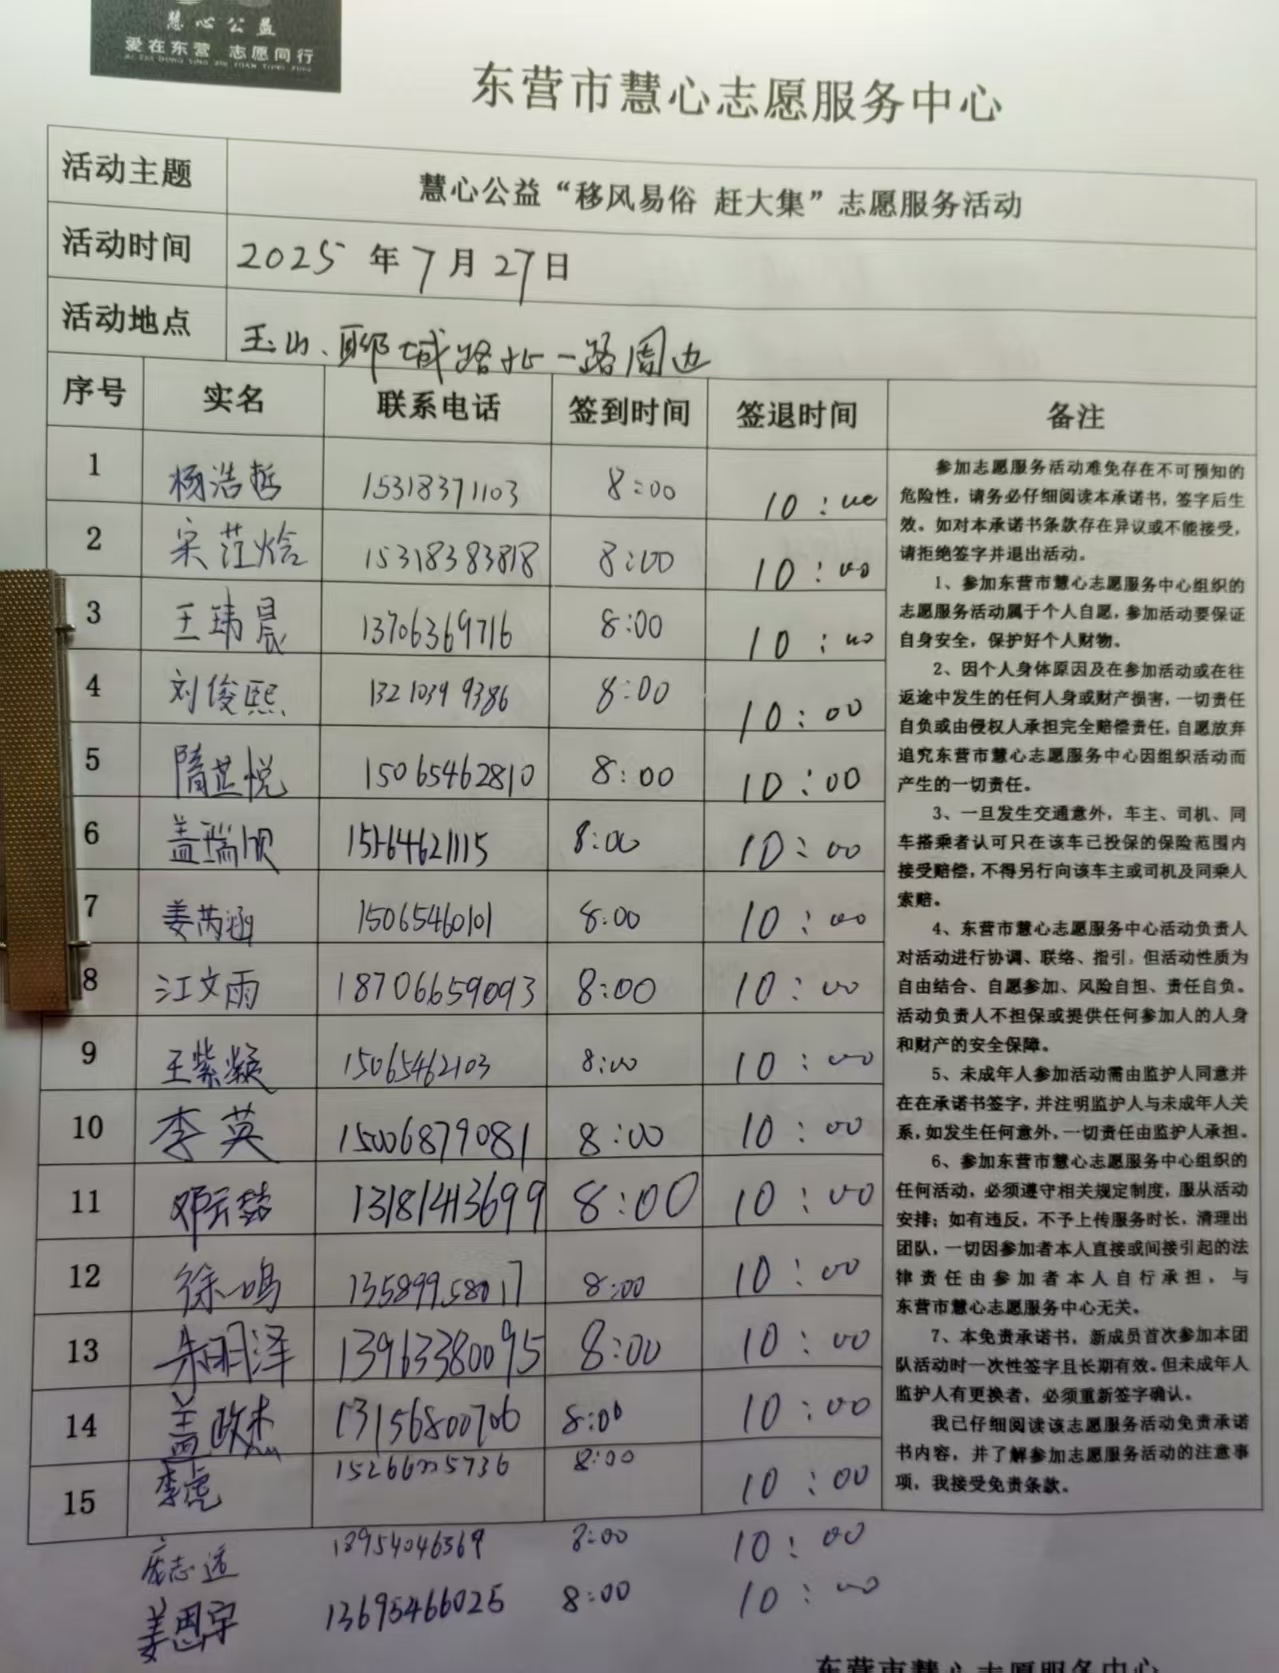 慧心公益
爱在东营 志愿同行
东营市慧心志愿服务中心
活动主题 慧心公益“移风易俗 赶大集”志愿服务活动
活动时间 2025年7月27日
活动地点 玉山、聊城路北一路周边
序号 实名 联系电话 签到时间 签退时间 备注
1 杨浩哲 15318371103 8:00 10:00
2 宋范焓 15318383818 8:00 10:00
3 王玮晨 13706369716 8:00 10:00
4 刘俊熙 13210399386 8:00 10:00
5 隋芷悦 15065462810 8:00 10:00
6 盖瑞顺 15164621115 8:00 10:00
7 姜芮涵 15065460101 8:00 10:00
8 江文雨 18706659093 8:00 10:00
9 王紫凝 15065462103 8:00 10:00
10 李英 15006879081 8:00 10:00
11 邓云喆 13181413699 8:00 10:00
12 徐一鸣 13589958017 8:00 10:00
13 朱玥泽 13963380095 8:00 10:00
14 盖政杰 13156800706 8:00 10:00
15 李虎 15266225736 8:00 10:00
庞志远 18954046369 8:00 10:00
姜恩宇 13695466025 8:00 10:00
参加志愿服务活动难免存在不可预知的
危险性，请务必仔细阅读本承诺书，签字后生
效。如对本承诺书条款存在异议或不能接受，
请拒绝签字并退出活动。
1、参加东营市慧心志愿服务中心组织的
志愿服务活动属于个人自愿，参加活动要保证
自身安全，保护好个人财物。
2、因个人身体原因及在参加活动或在往
返途中发生的任何人身或财产损害，一切责任
自负或由侵权人承担完全赔偿责任，自愿放弃
追究东营市慧心志愿服务中心因组织活动而
产生的一切责任。
3、一旦发生交通意外，车主、司机、同
车搭乘者认可只在该车已投保的保险范围内
接受赔偿，不得另行向该车主或司机及同乘人
索赔。
4、东营市慧心志愿服务中心活动负责人
对活动进行协调、联络、指引，但活动性质为
自由结合、自愿参加、风险自担、责任自负。
活动负责人不担保或提供任何参加人的人身
和财产的安全保障。
5、未成年人参加活动需由监护人同意并
在在承诺书签字，并注明监护人与未成年人关
系，如发生任何意外，一切责任由监护人承担。
6、参加东营市慧心志愿服务中心组织的
任何活动，必须遵守相关规定制度，服从活动
安排；如有违反，不予上传服务时长，清理出
团队，一切因参加者本人直接或间接引起的法
律责任由参加者本人自行承担，与
东营市慧心志愿服务中心无关。
7、本免责承诺书，新成员首次参加本团
队活动时一次性签字且长期有效。但未成年人
监护人有更换者，必须重新签字确认。
我已仔细阅读该志愿服务活动免责承诺
书内容，并了解参加志愿服务活动的注意事
项，我接受免责条款。
东营市慧心志愿服务中心